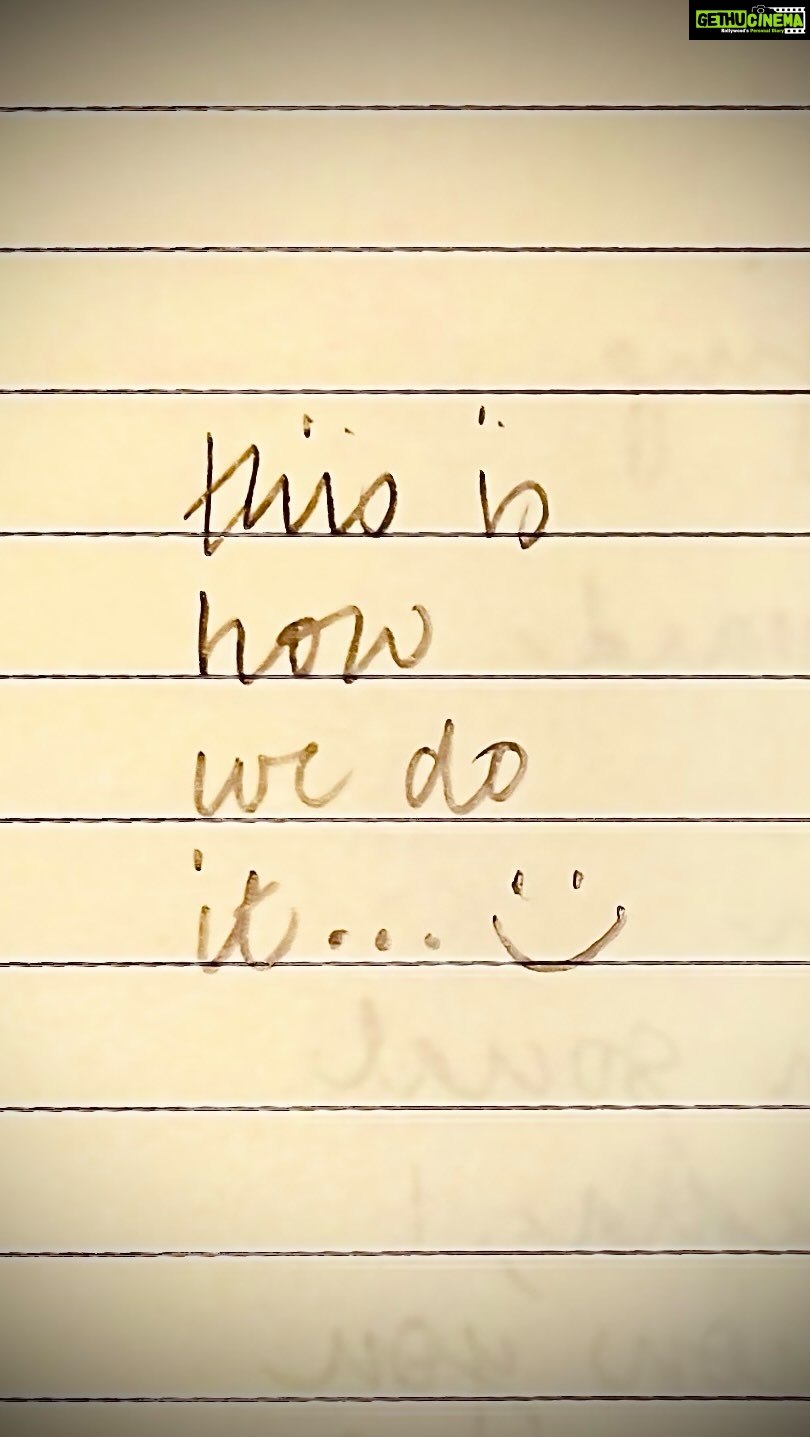 GETHUCINEMA
Kollywood's Personal Diary
this is
how
we do
it... :)